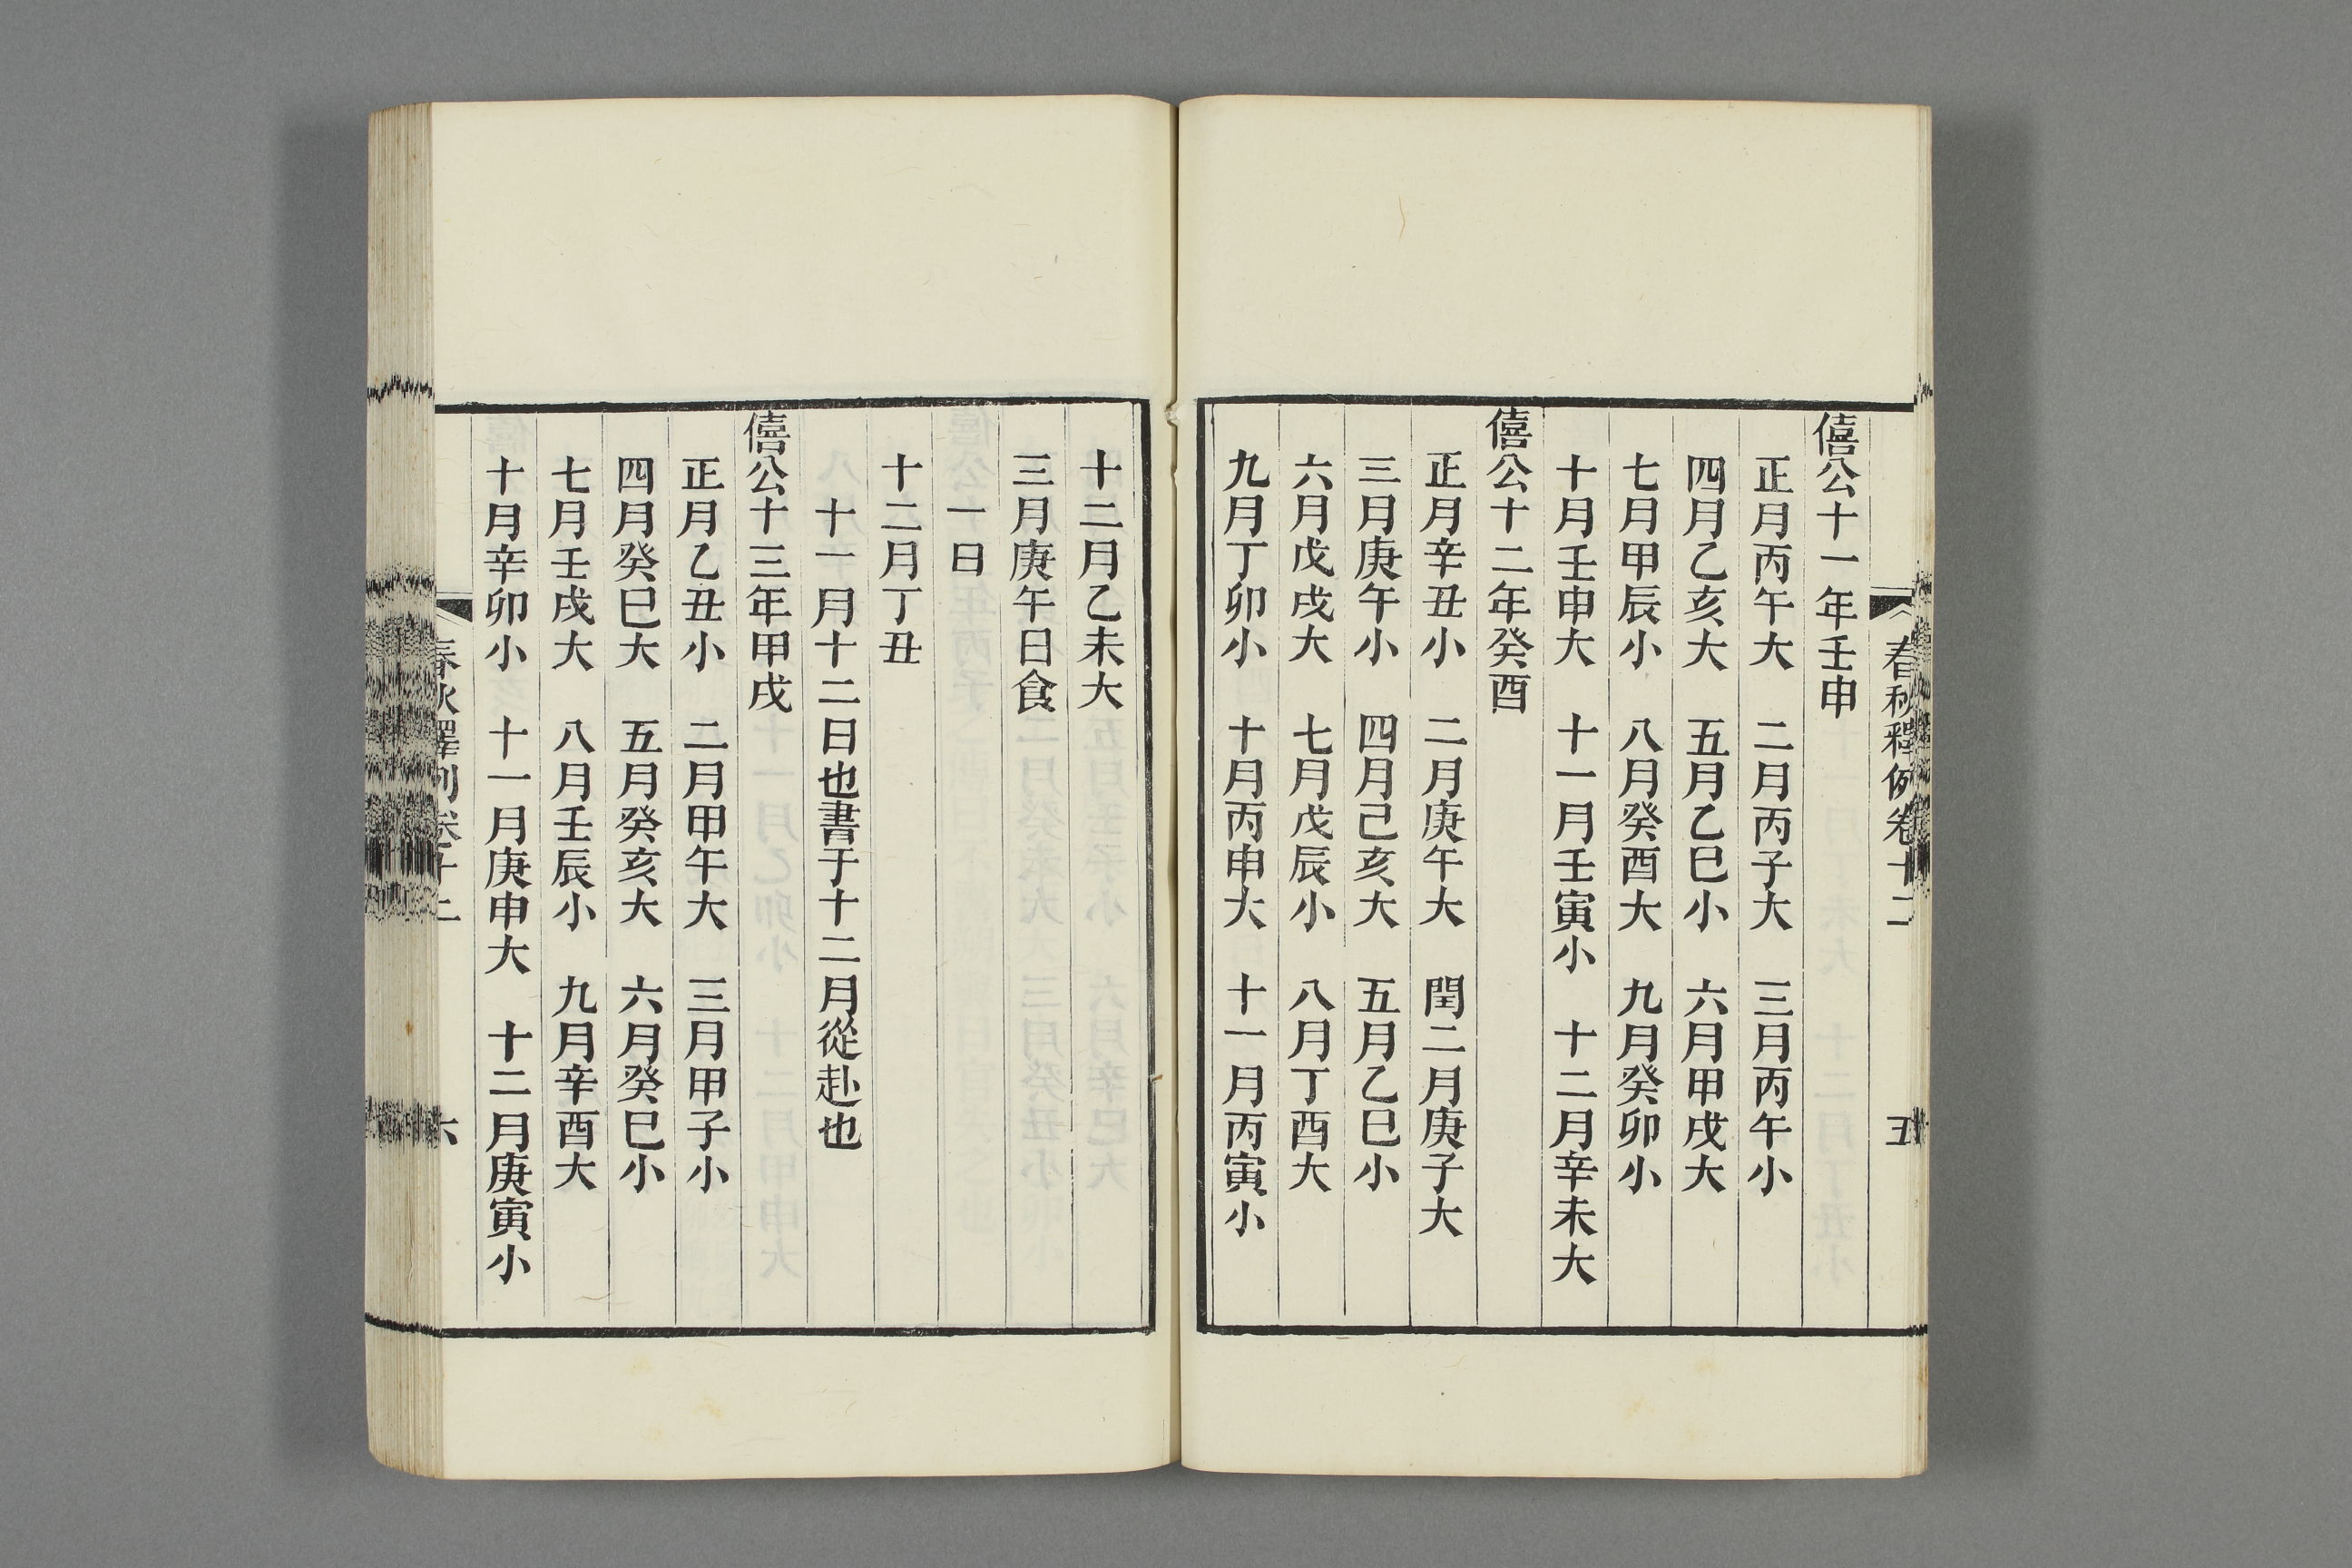 春秋釋例卷十二 五
僖公十一年壬申
正月丙午大 二月丙子大 三月丙午小
四月乙亥大 五月乙巳小 六月甲戌大
七月甲辰小 八月癸酉大 九月癸卯小
十月壬申大 十一月壬寅小 十二月辛未大
僖公十二年癸酉
正月辛丑小 二月庚午大 閏二月庚子大
三月庚午小 四月己亥大 五月乙巳小
六月戊戌大 七月戊辰小 八月丁酉大
九月丁卯小 十月丙申大 十一月丙寅小
十二月乙未大
三月庚午日食
一日
十二月丁丑
十一月十二日也書于十二月從赴也
僖公十三年甲戌
正月乙丑小 二月甲午大 三月甲子小
四月癸巳大 五月癸亥大 六月癸巳小
七月壬戌大 八月壬辰小 九月辛酉大
十月辛卯小 十一月庚申大 十二月庚寅小
春秋釋例卷十二 六